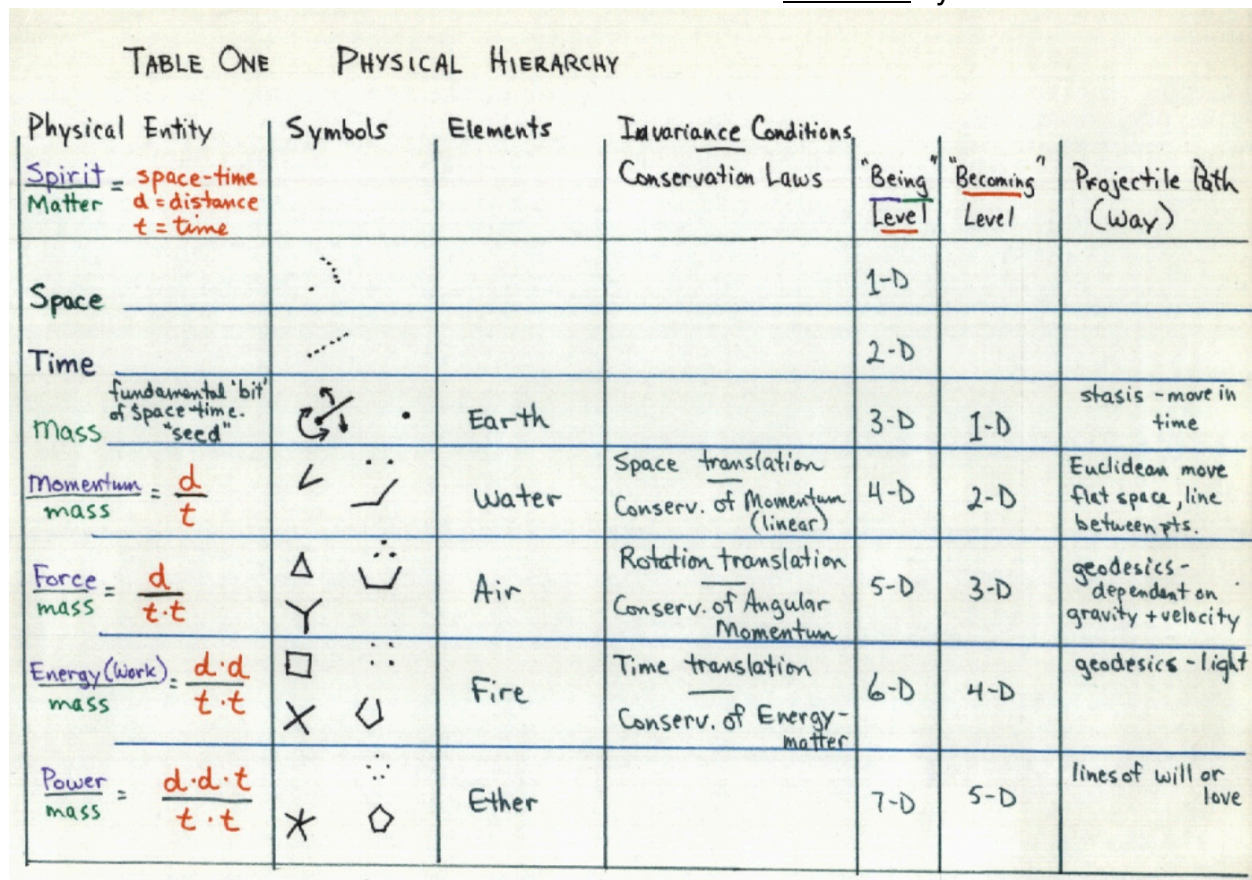 TABLE ONE PHYSICAL HIERARCHY
Physical Entity Symbols Elements Invariance Conditions
Spirit/Matter = space-time
d = distance
t = time
Conservation Laws
"Being" Level
"Becoming" Level
Projectile Path
(Way)
Space 1-D
Time 2-D
Mass fundamental 'bit'
of space-time.
"seed"
Earth 3-D 1-D
stasis - move in
time
Momentum/mass = d/t
Water
Space translation
Conserv. of Momentum
(linear)
4-D 2-D
Euclidean move
flat space, line
between pts.
Force/mass = d/t·t
Air
Rotation translation
Conserv. of Angular
Momentum
5-D 3-D
geodesics -
dependant on
gravity + velocity
Energy (Work)/mass = d·d/t·t
Fire
Time translation
Conserv. of Energy-
matter
6-D 4-D
geodesics - light
Power/mass = d·d·t/t·t
Ether
7-D 5-D
lines of will or
love